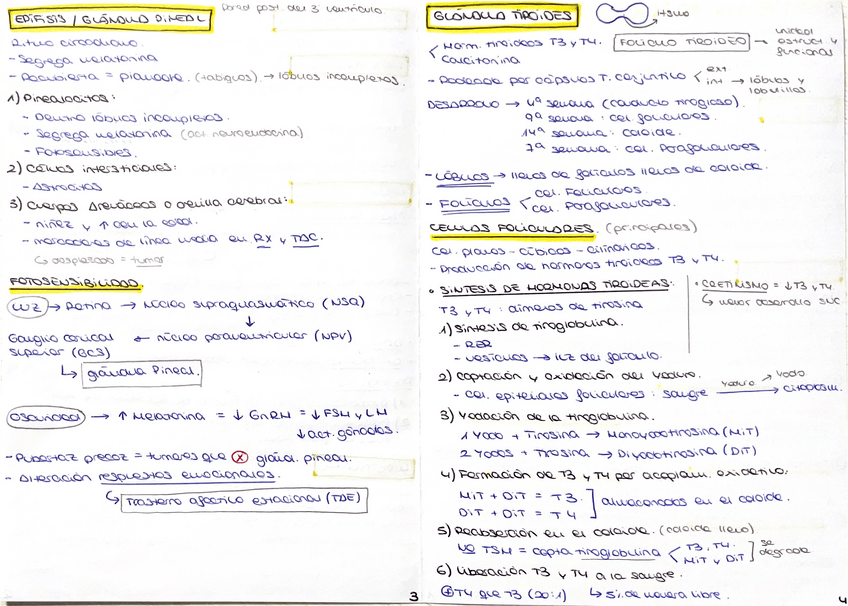 EPÍFISIS / GLÁNDULA PINEAL
Pared post. del 3 ventrículo
Ritmo circadiano.
- Segrega melatonina
- Recubierta = piamadre. (tabiques) → lóbulos incompletos.
1) Pinealocitos:
- Dentro lóbulos incompletos.
- Segrega melatonina (act. neuroendocrina)
- Fotosensibles.
2) Células intersticiales:
- Astrocitos
3) Cuerpos arenáceos o arenilla cerebral:
- niñez y ↑ con la edad.
- marcadores de línea media en RX y TAC.
↳ desplazado = tumor
FOTOSENSIBILIDAD
LUZ → Retina → Núcleo supraquiasmático (NSQ)
↓
Ganglio cervical ← núcleo paraventricular (NPV)
superior (GCS)
↳ glándula Pineal.
Oscuridad → ↑ Melatonina = ↓ GnRH = ↓ FSH y LH
↓ act. gónadas.
- Pubertad precoz = tumores que ⓧ glánd. pineal.
- Alteración respuestas emocionales.
↳ Trastorno afectivo estacional (TAE)
3
GLÁNDULA TIROIDES
istmo
Horm. tiroideas T3 y T4.
Calcitonina
FOLÍCULO TIROIDEO → unidad
estruct. y
funcional
- Rodeada por cápsula T. conjuntivo < ext
int → lóbulos y
lobulillos.
DESARROLLO → 4ª semana (conducto tirogloso).
9ª semana: cel. foliculares.
14ª semana: coloide.
7ª semana: cel. Parafoliculares.
- LÓBULOS → llenos de folículos llenos de coloide.
- FOLÍCULOS < cel. Foliculares
cel. Parafoliculares.
CÉLULAS FOLICULARES. (principales)
Cel. planas - cúbicas - cilíndricas.
- Producción de hormonas tiroideas T3 y T4.
• SÍNTESIS DE HORMONAS TIROIDEAS:
• CRETINISMO = ↓ T3 y T4
↳ menor desarrollo SNC.
T3 y T4: dímeros de tirosina
1) Síntesis de tiroglobulina.
- RER
- vesículas → luz del folículo.
2) Captación y oxidación del yoduro.
- Cel. epiteliales foliculares: sangre yoduro → yodo → citoplasm.
3) Yodación de la tiroglobulina.
1 Yodo + Tirosina → Monoyodotirosina (MiT)
2 Yodos + Tirosina → Diyodotirosina (DiT)
4) Formación de T3 y T4 por acoplam. oxidativo:
MiT + DiT = T3
DiT + DiT = T4 ] almacenadas en el coloide.
5) Reabsorción en el coloide. (coloide lleno)
TSH = capta tiroglobulina < T3, T4.
MiT y DiT ] se
degrada
6) Liberación T3 y T4 a la sangre.
⊕ T4 que T3 (20:1) ↳ de manera libre.
4